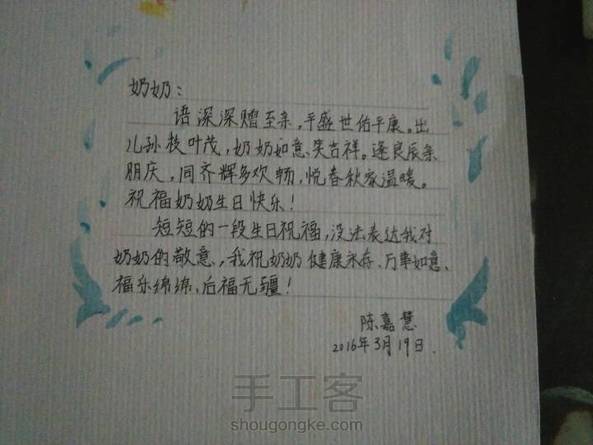 奶奶：
语深深赠至亲，平盛世佑平康。出
儿孙枝叶茂，奶奶如意笑吉祥。逢良辰亲
朋庆，同齐辉多欢畅，悦春秋家温暖。
祝福奶奶生日快乐！
短短的一段生日祝福，没法表达我对
奶奶的敬意，我祝奶奶健康永存、万事如意、
福乐绵绵、后福无疆！
陈嘉慧
2016年3月19日.
手工客
shougongke.com